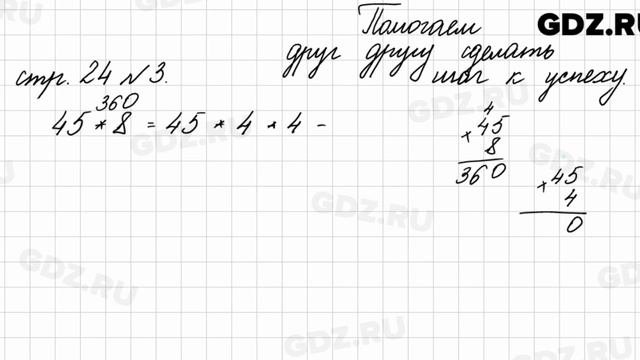 GDZ.RU
Помогаем
друг другу сделать
шаг к успеху.
стр. 24 №3.
360
45 * 8 = 45 * 4 * 4 -
4
× 45
8
360
× 45
4
0
GDZ.RU
GDZ.RU
GDZ.RU
GDZ.RU
GDZ.RU
GDZ.RU
GDZ.RU